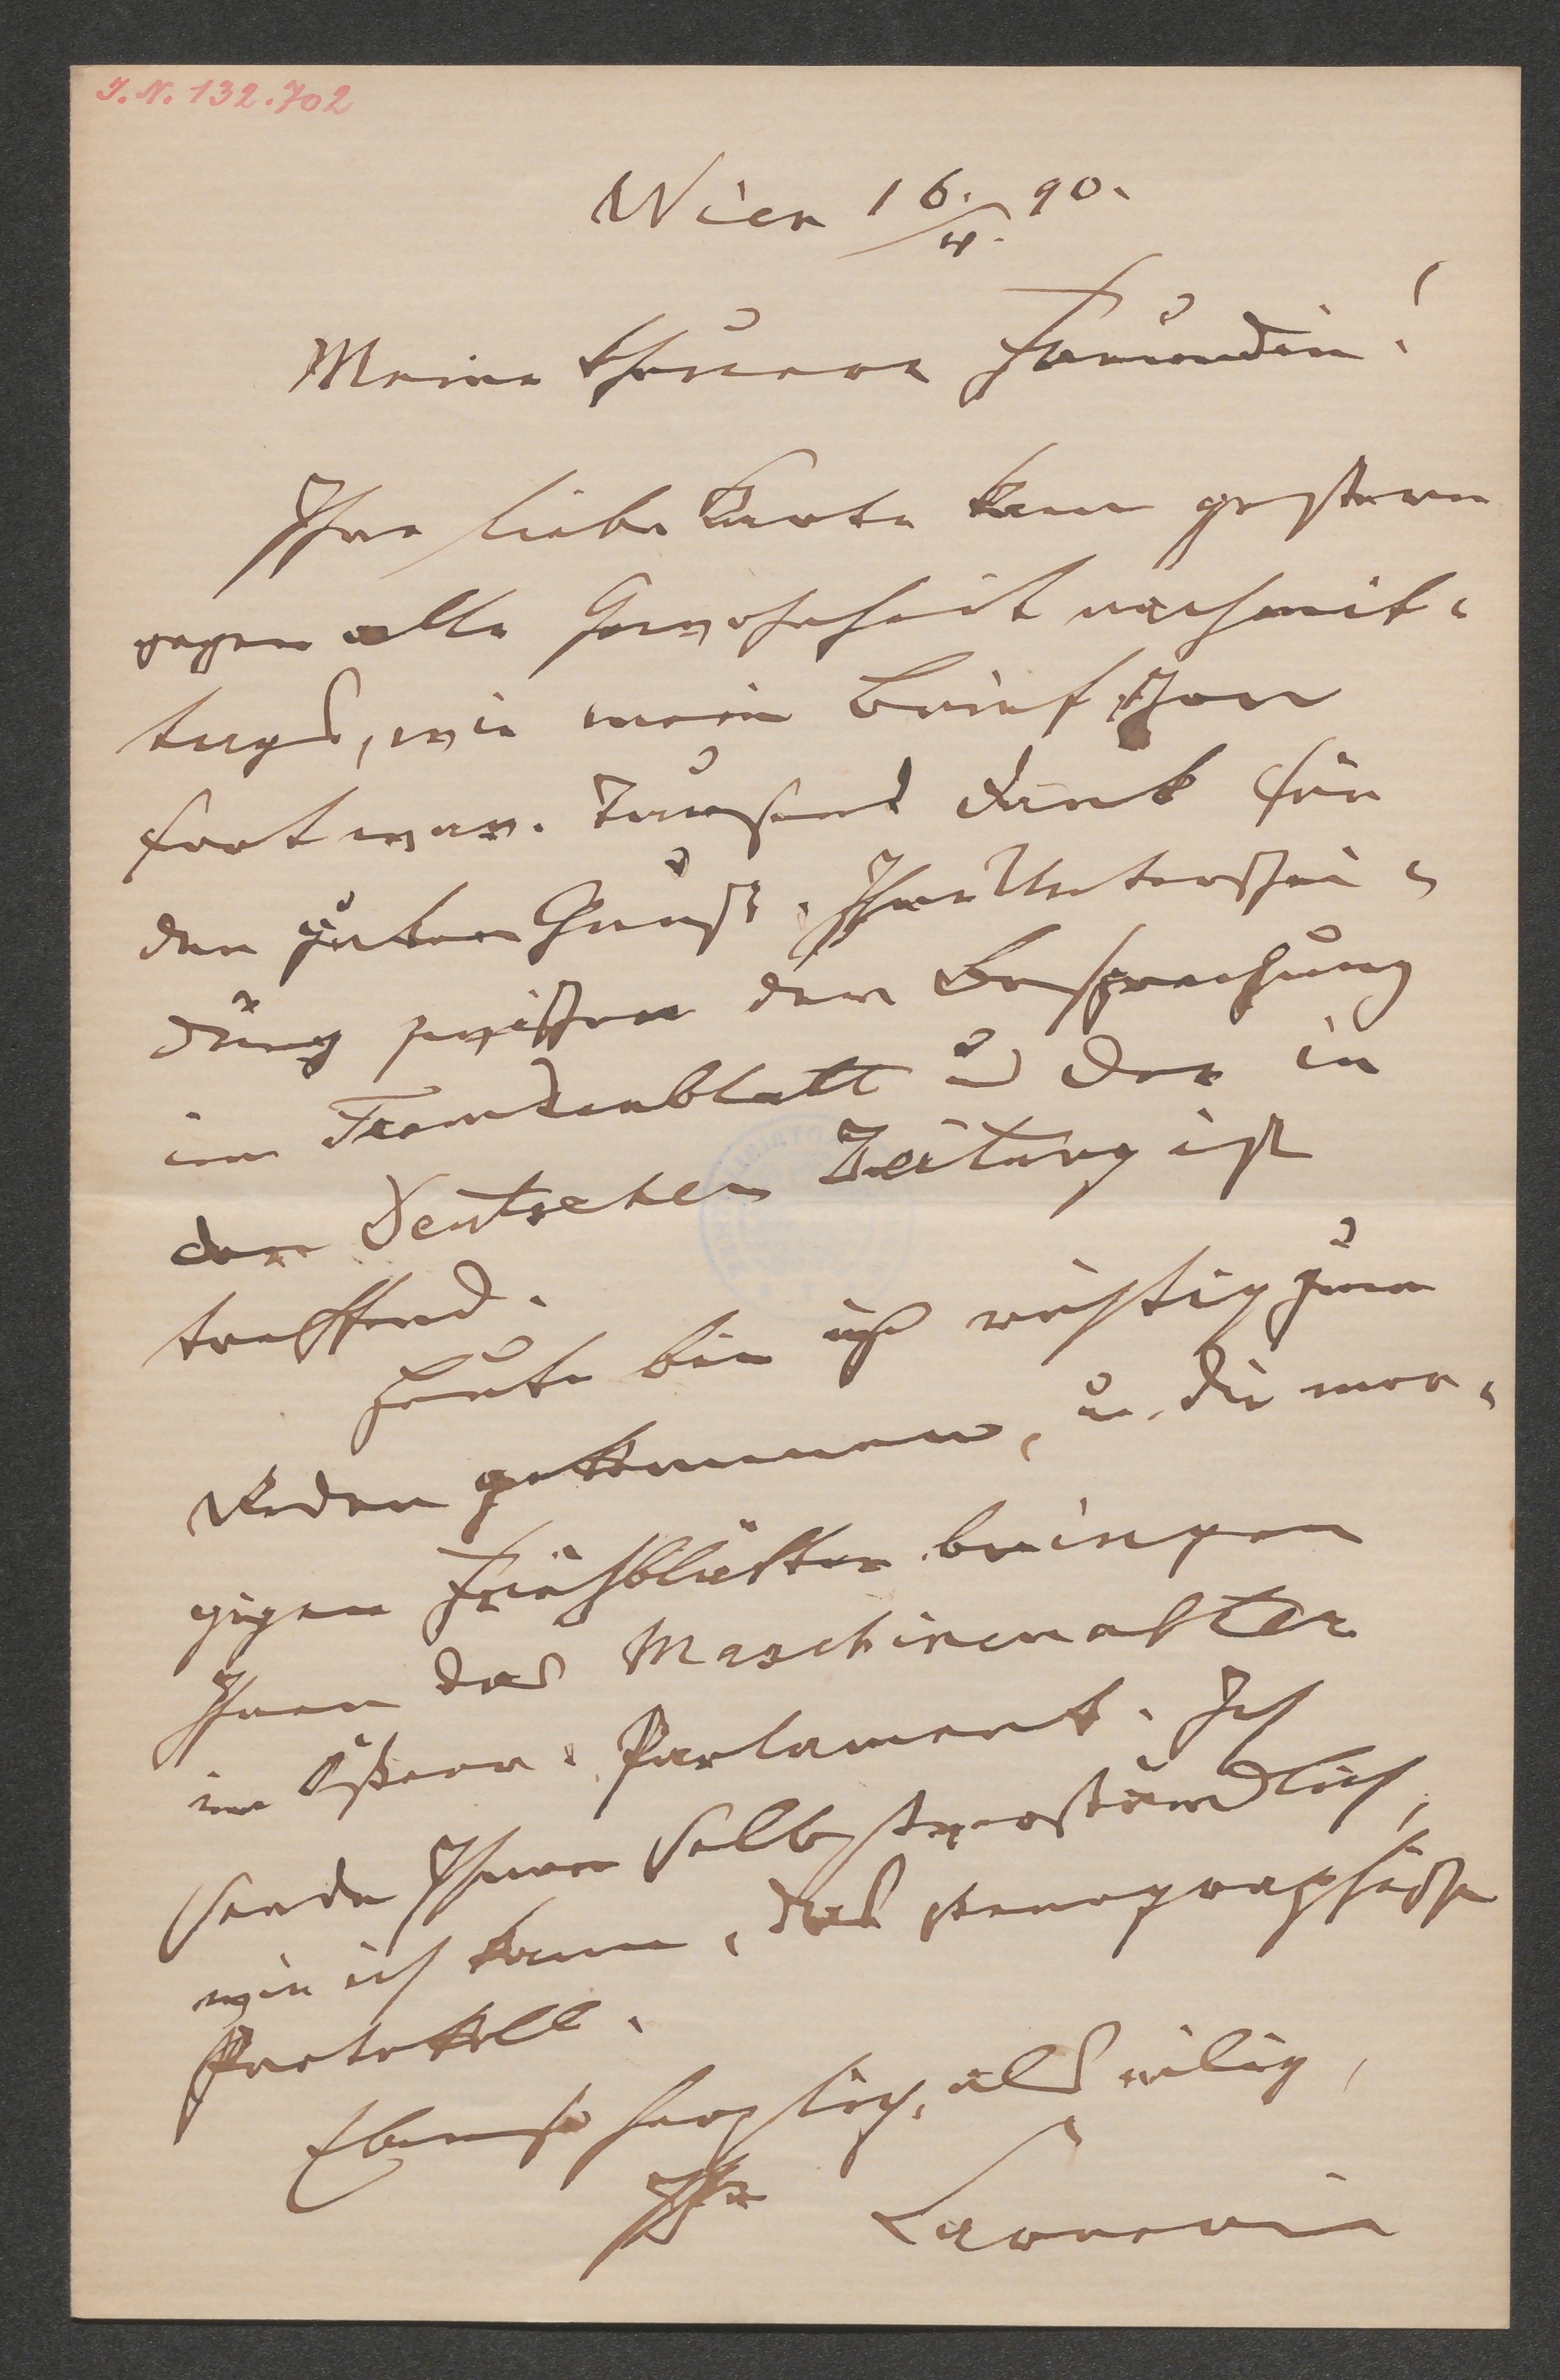 J. N. 132.702
Wien 16./IV. 90.
Meine theuere Freundin!
Ihre liebe Karte kam gestern
gegen alle Gewohnheit nachmit-
tags, wie mein Brief schon
fort war. Tausend Dank für
den guten Gruß. Ihre Unterschei-
dung zwischen der Besprechung
im Fremdenblatt u der in
der Deutschen Zeitung ist
treffend.
Heute bin ich richtig zum
Reden gekommen, u. die mor-
gigen Frühblätter bringen
Ihnen das Maschinenalter
im Österr. Parlament. Ich
sende Ihnen selbstverständlich,
wie ich kann, das stenographische
Protokoll.
Ebenso herzlich, als eilig,
Ihr Carneri